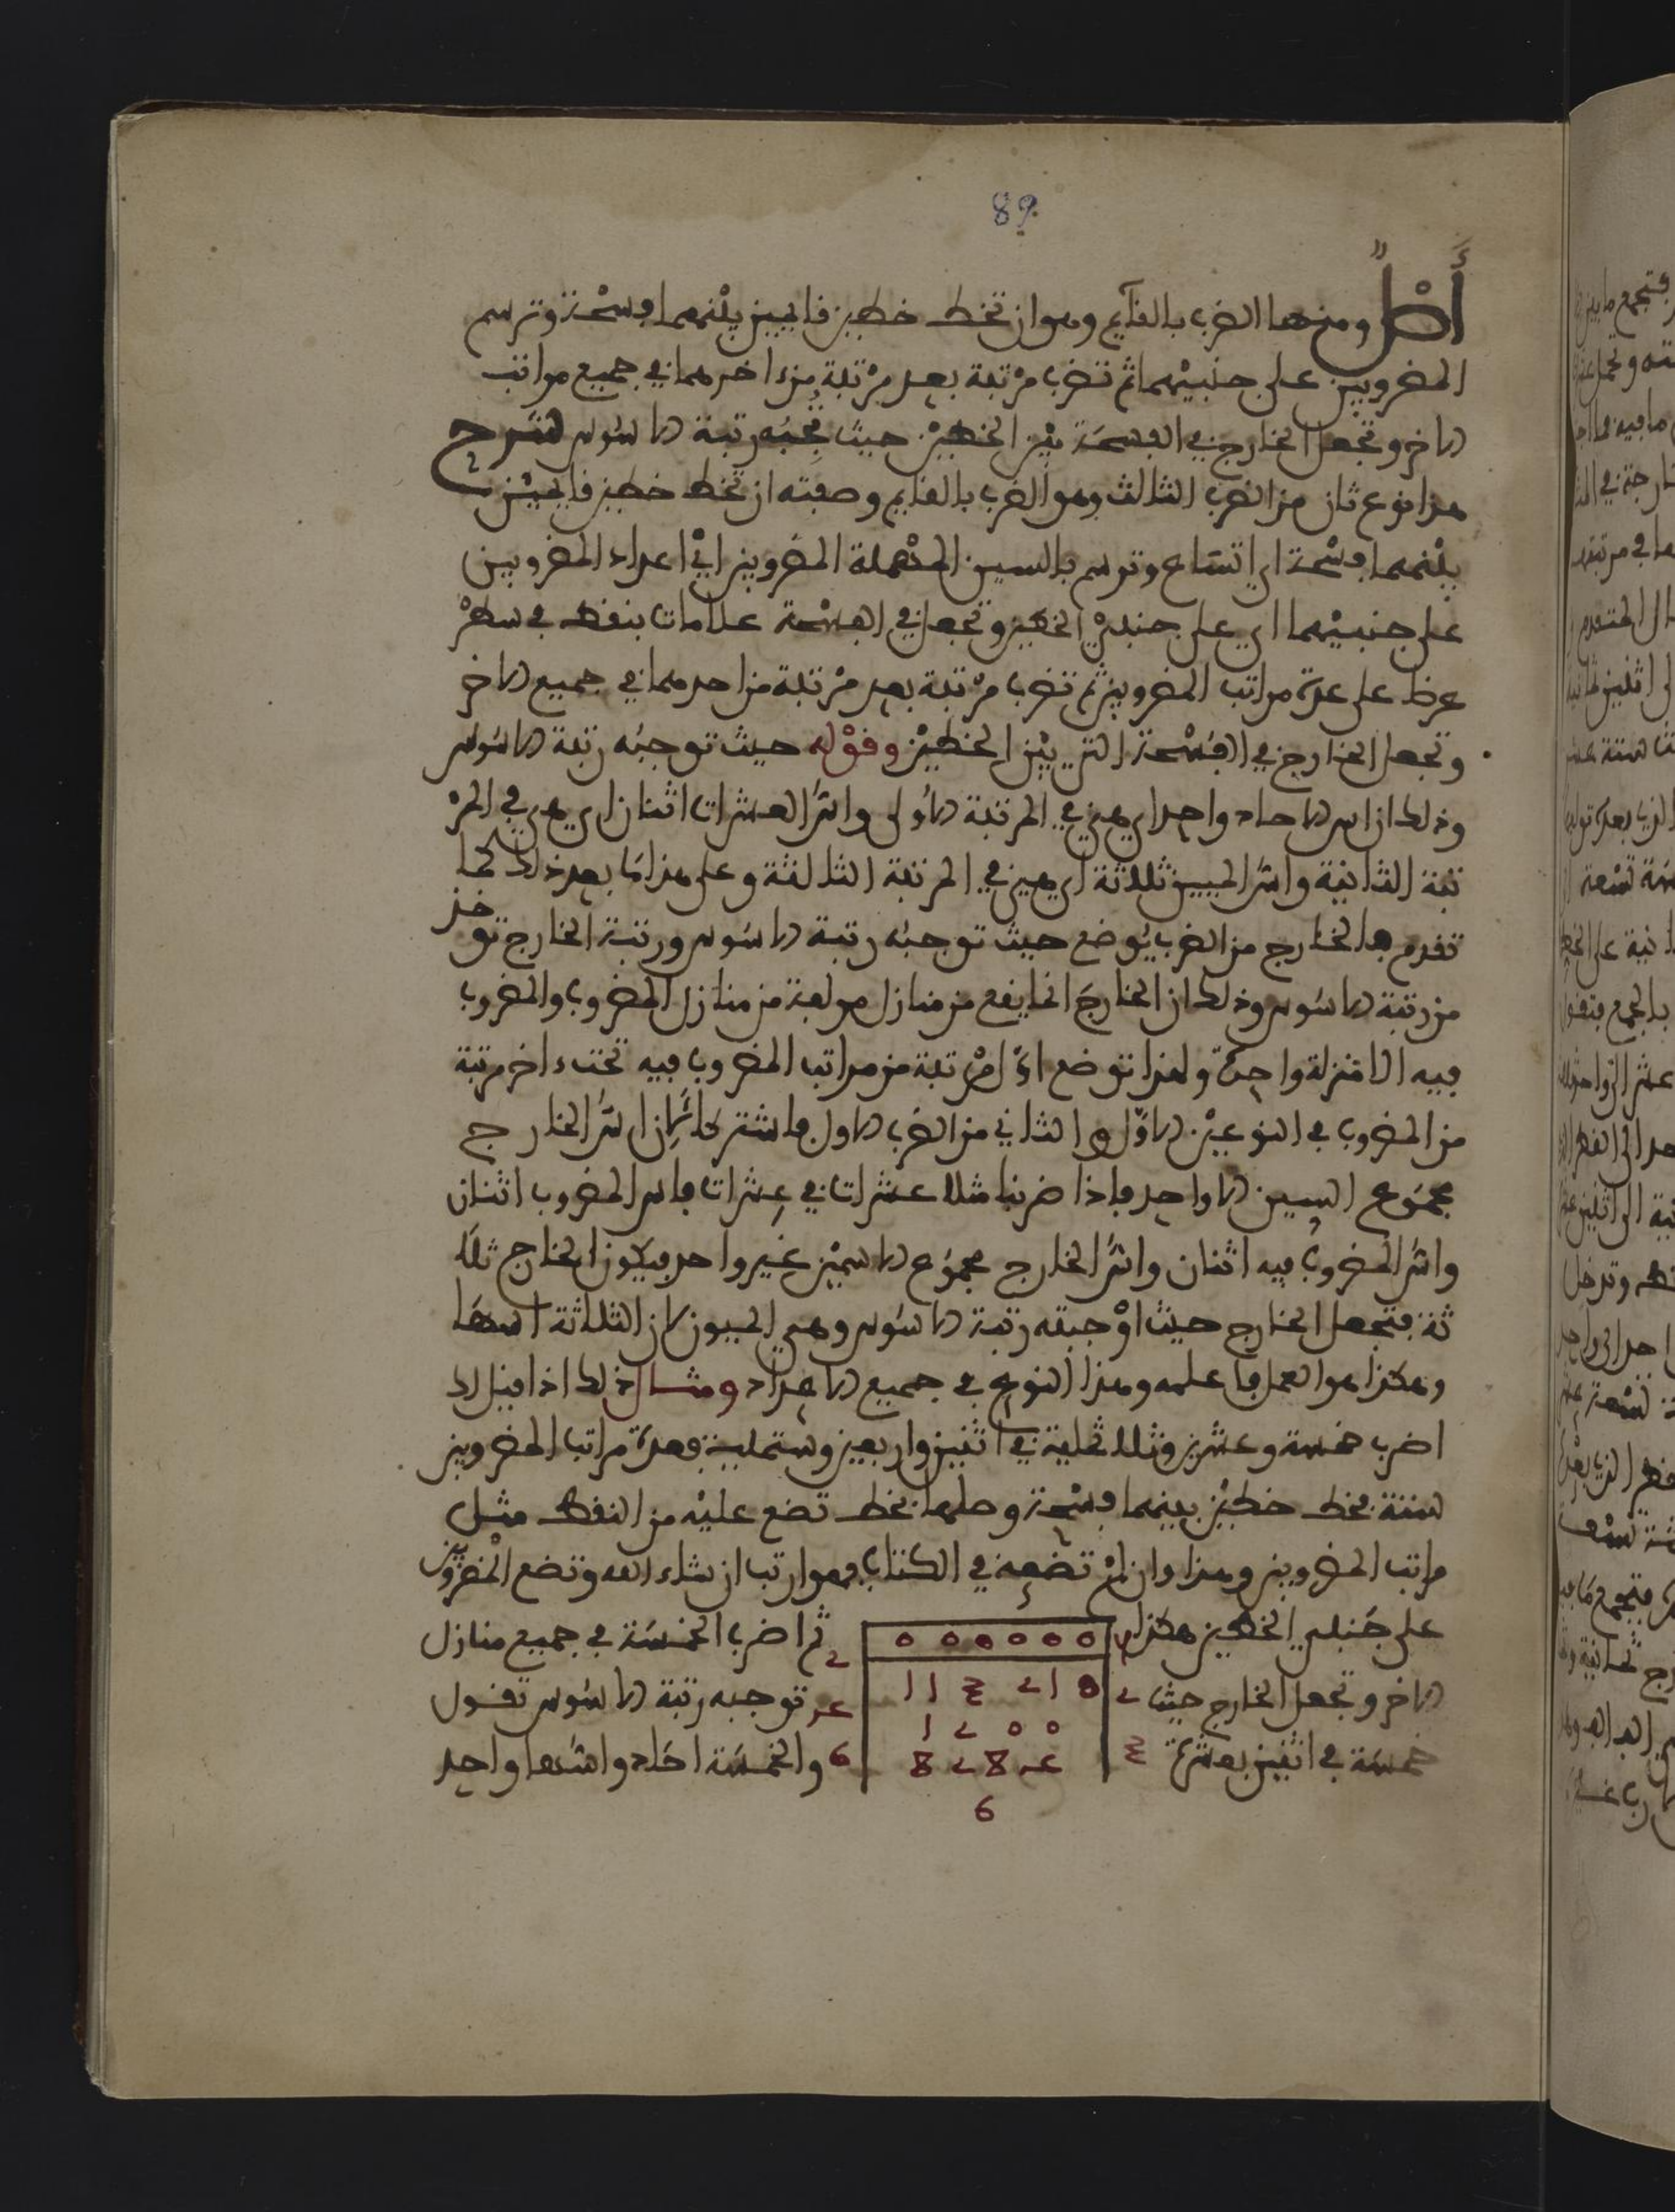 89
أصل ومنها الضرب بالقآيم وهو ان تخط خطين قايمين بينهما فسحة وترسم
المضروبين على جنبيهما ثم تضرب مرتبة بعد مرتبة من احدهما في جميع مراتب
الاخر وتجعل الخارج في الفسحة بين الخطين حيث توجبه رتبة الاسوس شرح
هذا نوع ثان من الضرب الثالث وهو الضرب بالقايم وصفته ان تخط خطين قايمين
بينهما فسحة اي اتساع وترسم بالسين المهملة المضروبين اي اعداد المضروبين
على جنبيهما اي على جنبي الخطين وتجعل في الفسحة علامات بنقط في سطر
عرضا على عدة مراتب المضروبين ثم تضرب مرتبة بعد مرتبة من احدهما في جميع الاخر
وتجعل الخارج في الفسحة التي بين الخطين وقوله حيث توجبه رتبة الاسوس
وذلك ان اس الاحاد واحد اي هي في المرتبة الاولى واس العشرات اثنان اي هي في المر
تبة الثانية واس الميين ثلاثة اي هي في المرتبة الثالثة وعلى هذا ما بعد ذلك كما
تقدم فالخارج من الضرب يوضع حيث توجبه رتبة الاسوس ورتبة الخارج توخذ
من رتبة الاسوس وذلك ان الخارج انما يقع من منازل مولفة من منازل المضروب والمضروب
فيه الا منزلة واحدة ولهذا توضع اول مرتبة من مراتب المضروب فيه تحت اخر مرتبة
من المضروب في النوعين الاول والثاني من الضرب الاول فاشتركا في ان اس الخارج
مجموع السين الا واحد فاذا ضربنا مثلا عشرات في عشرات فاس المضروب اثنان
واس المضروب فيه اثنان واس الخارج مجموع الاسين غير واحد فيكون الخارج ثلا
ثة فتجعل الخارج حيث اوجبته رتبة الاسوس وهي الميون لان الثلاثة اسها
وهكذا هو العمل فاعلمه وهذا النوع في جميع الاعداد ومثال ذلك اذا قيل لك
اضرب خمسة وعشرين وثلاثماية في اثنين واربعين وستماية فعدة مراتب المضروبين
ستة فخط خطين بينهما فسحة وصلهما بخط تضع عليه من النقط مثل
مراتب المضروبين وهذا وان لم تضعه في الكتاب فهو ارتب ان شاء الله وتضع المضروبين
على جنبي الخطين هكذا ثم اضرب الخمسة في جميع منازل
الاخر وتجعل الخارج حيث توجبه رتبة الاسوس تقول
خمسة في اثنين بعشرة والخمسة احاد واسها واحد